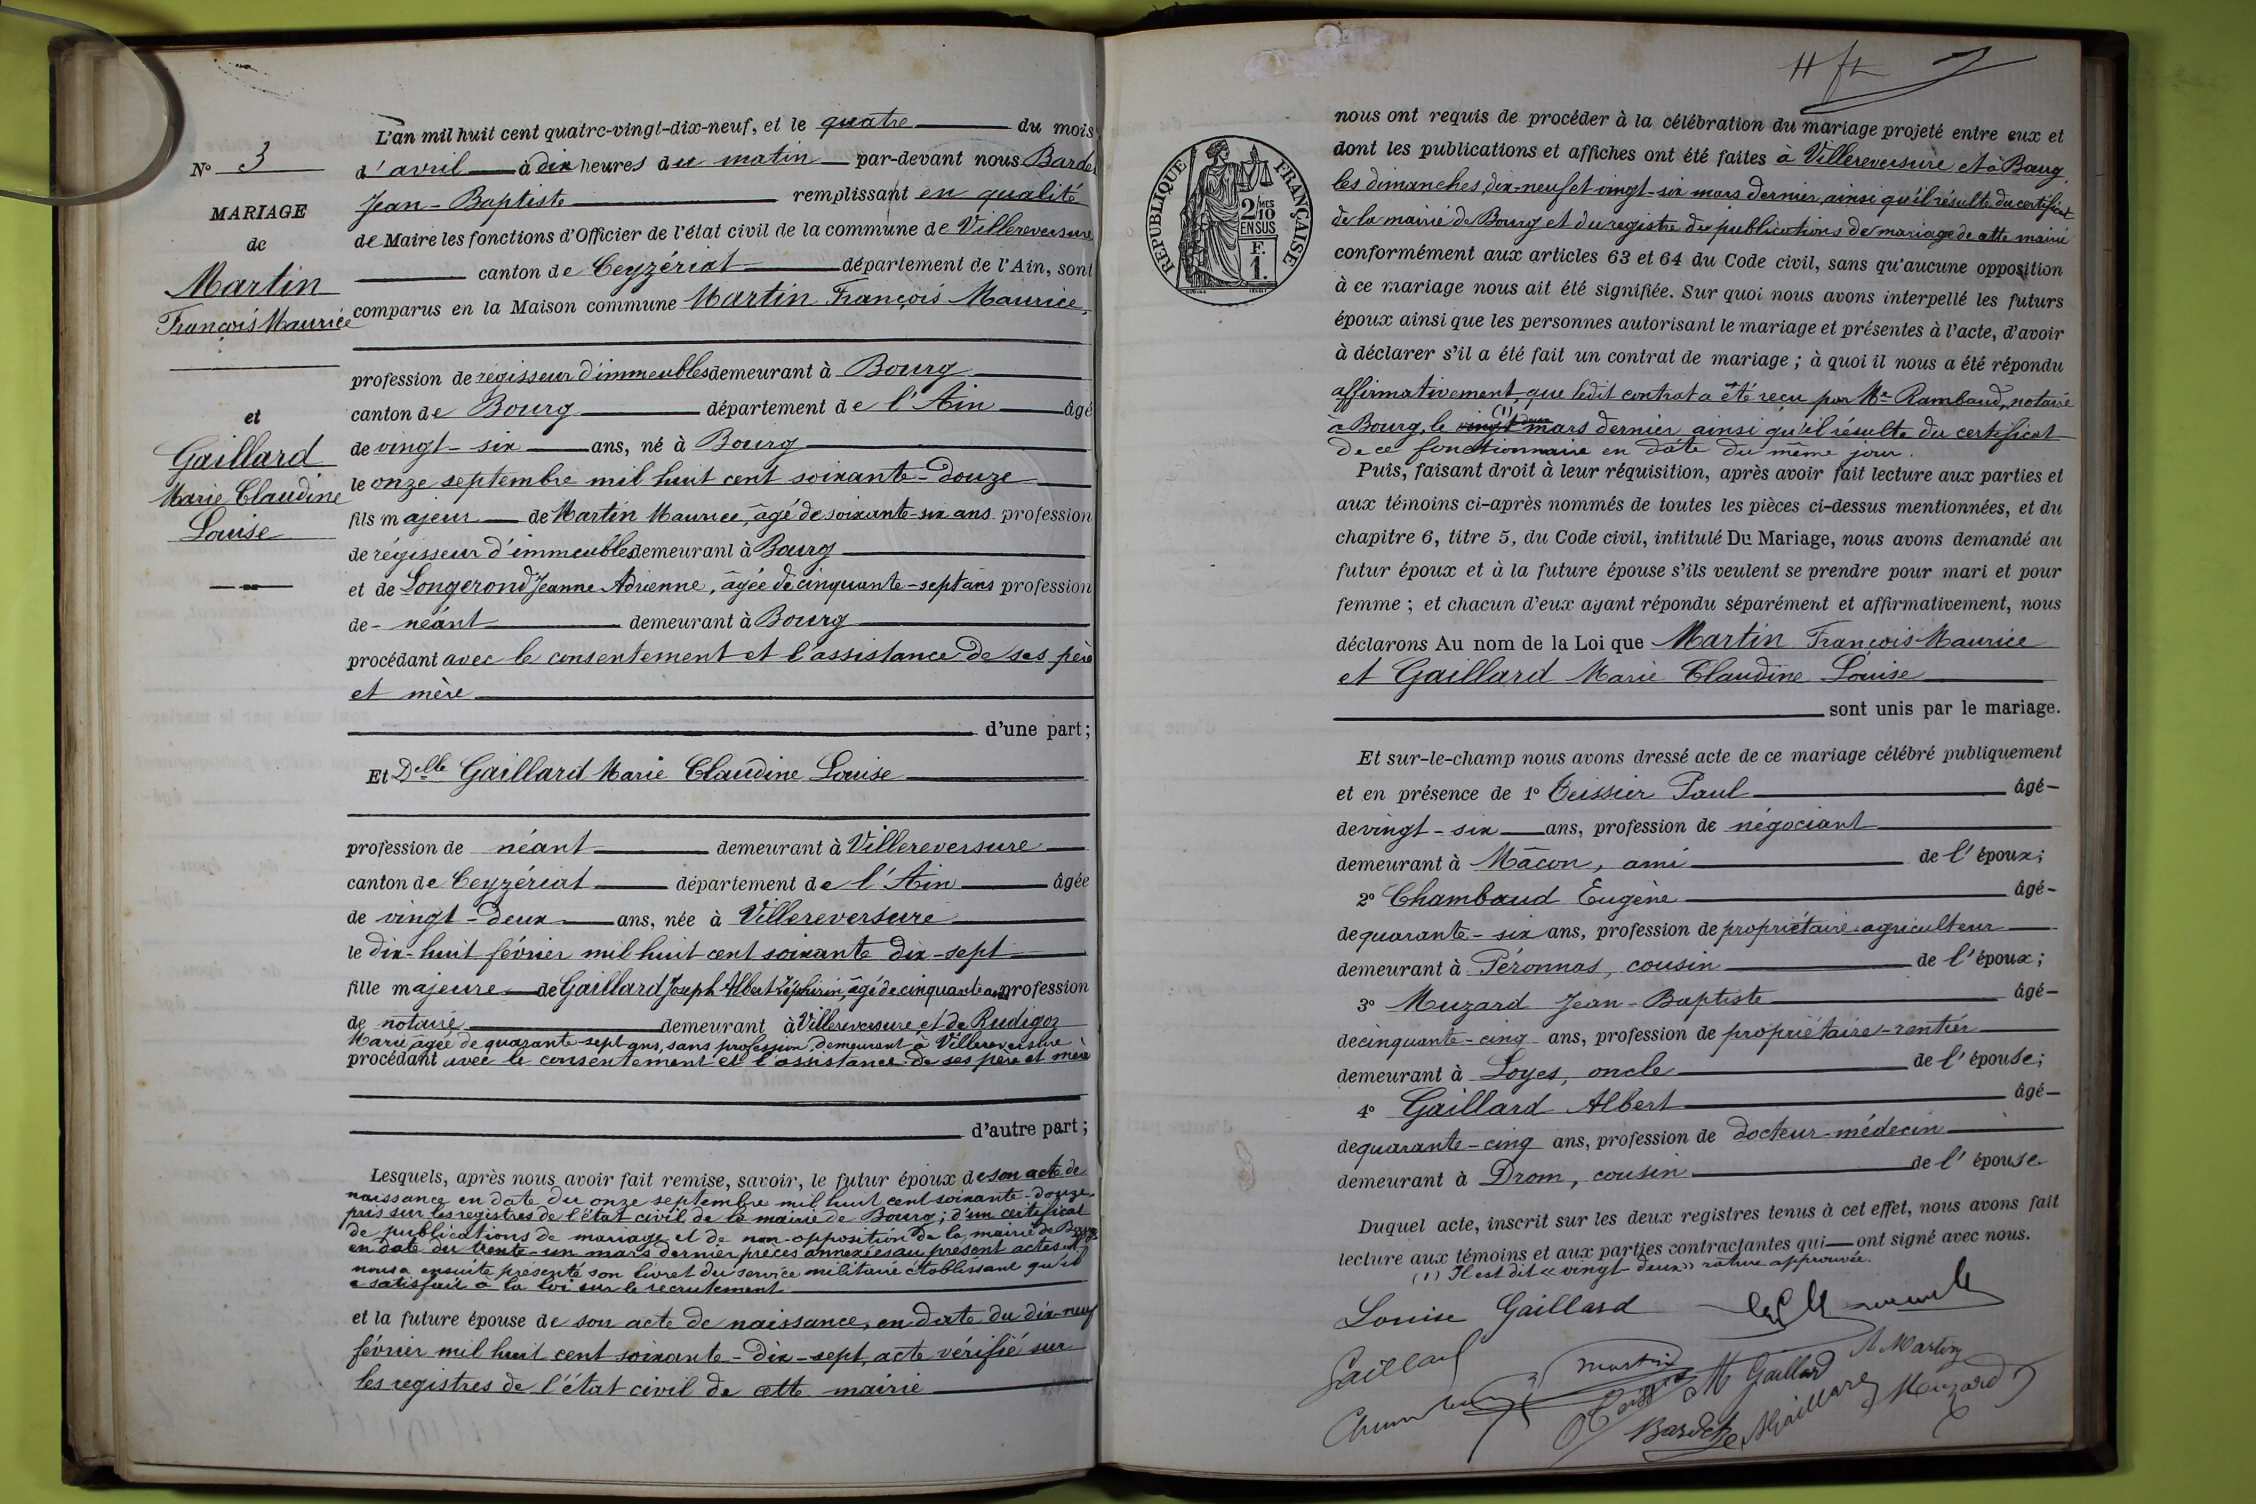 L'an mil huit cent quatre-vingt-dix-neuf, et le quatre du mois
N° 3
d'avril à dix heures du matin par-devant nous Bardet
Jean-Baptiste remplissant en qualité
de Maire les fonctions d'Officier de l'état civil de la commune de Villereversure
canton de Ceyzériat département de l'Ain, sont
comparus en la Maison commune Martin François Maurice,
MARIAGE
de
Martin
François Maurice
et
Gaillard
Marie Claudine
Louise
profession de régisseur d'immeubles demeurant à Bourg
canton de Bourg département de l'Ain âgé
de vingt-six ans, né à Bourg
le onze septembre mil huit cent soixante-douze
fils majeur de Martin Maurice, âgé de soixante-six ans profession
de régisseur d'immeubles demeurant à Bourg
et de Longerond Jeanne Adrienne, âgée de cinquante-sept ans profession
de - néant demeurant à Bourg
procédant avec le consentement et l'assistance de ses père
et mère
d'une part;
Et Delle Gaillard Marie Claudine Louise
profession de néant demeurant à Villereversure
canton de Ceyzériat département de l'Ain âgée
de vingt-deux ans, née à Villereversure
le dix-huit février mil huit cent soixante dix-sept
fille majeure de Gaillard Joseph Albert Zéphirin, âgé de cinquante ans profession
de notaire demeurant à Villereversure et de Rudigoz
Marie âgée de quarante-sept ans, sans profession demeurant à Villereversure
procédant avec le consentement et l'assistance de ses père et mère
d'autre part;
Lesquels, après nous avoir fait remise, savoir, le futur époux de son acte de
naissance en date du onze septembre mil huit cent soixante-douze
pris sur les registres de l'état civil de la mairie de Bourg; d'un certificat
de publications de mariage et de non-opposition de la mairie de Bourg
en date du trente-un mars dernier pièces annexées au présent acte; et
nous a ensuite présenté son livret du service militaire établissant qu'il
a satisfait à la loi sur le recrutement
et la future épouse de son acte de naissance, en date du dix-neuf
février mil huit cent soixante-dix-sept, acte vérifié sur
les registres de l'état civil de cette mairie
11
REPUBLIQUE FRANÇAISE
2/10 MES
EN SUS
F.
1.
nous ont requis de procéder à la célébration du mariage projeté entre eux et
dont les publications et affiches ont été faites à Villereversure et à Bourg,
les dimanches, dix-neuf et vingt-six mars dernier, ainsi qu'il résulte du certificat
de la mairie de Bourg et du registre des publications de mariage de cette mairie
conformément aux articles 63 et 64 du Code civil, sans qu'aucune opposition
à ce mariage nous ait été signifiée. Sur quoi nous avons interpellé les futurs
époux ainsi que les personnes autorisant le mariage et présentes à l'acte, d'avoir
à déclarer s'il a été fait un contrat de mariage; à quoi il nous a été répondu
affirmativement que ledit contrat a été reçu par Me Rambaud, notaire
à Bourg, le vingt (1) deux mars dernier ainsi qu'il résulte du certificat
de ce fonctionnaire en date du même jour.
Puis, faisant droit à leur réquisition, après avoir fait lecture aux parties et
aux témoins ci-après nommés de toutes les pièces ci-dessus mentionnées, et du
chapitre 6, titre 5, du Code civil, intitulé Du Mariage, nous avons demandé au
futur époux et à la future épouse s'ils veulent se prendre pour mari et pour
femme; et chacun d'eux ayant répondu séparément et affirmativement, nous
déclarons Au nom de la Loi que Martin François Maurice
et Gaillard Marie Claudine Louise
sont unis par le mariage.
Et sur-le-champ nous avons dressé acte de ce mariage célébré publiquement
et en présence de 1° Teissier Paul âgé
de vingt-six ans, profession de négociant
demeurant à Mâcon, ami de l'époux;
2° Chambaud Eugène âgé
de quarante-six ans, profession de propriétaire-agriculteur
demeurant à Péronnas, cousin de l'époux;
3° Muzard Jean-Baptiste âgé
de cinquante-cinq ans, profession de propriétaire-rentier
demeurant à Loyes, oncle de l'épouse;
4° Gaillard Albert âgé
de quarante-cinq ans, profession de docteur-médecin
demeurant à Drom, cousin de l'épouse
Duquel acte, inscrit sur les deux registres tenus à cet effet, nous avons fait
lecture aux témoins et aux parties contractantes qui ont signé avec nous.
(1) Il est dit « vingt-deux » rature approuvée.
Louise Gaillard
Gaillard Martin M Gaillard A Martin
Bardet AGaillard Muzard